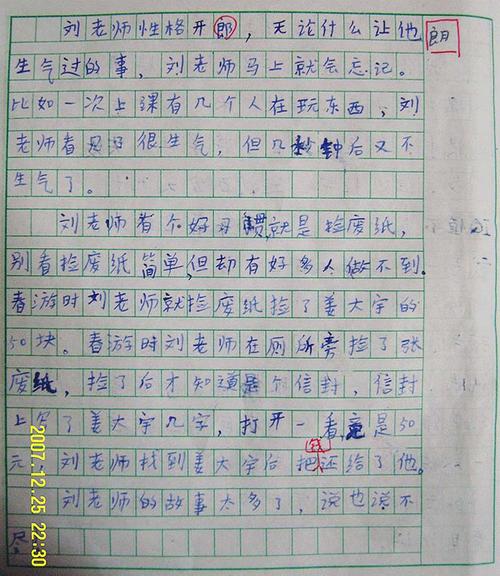 刘老师性格开郎，无论什么让他
朗
生气过的事，刘老师马上就会忘记。
比如一次上课有几个人在玩东西，刘
老师看见了很生气，但几秒钟后又不
生气了。
刘老师有个好习惯就是捡废纸，
别看捡废纸简单，但却有好多人做不到。
春游时刘老师就捡废纸捡了姜大宇的
50块。春游时刘老师在厕所旁捡了张
废纸，捡了后才知道是个信封，信封
上写了姜大宇几字，打开一看竟是50
元。刘老师找到姜大宇后把钱还给了他。
刘老师的故事太多了，说也说不
尽
2007.12.25 22:30